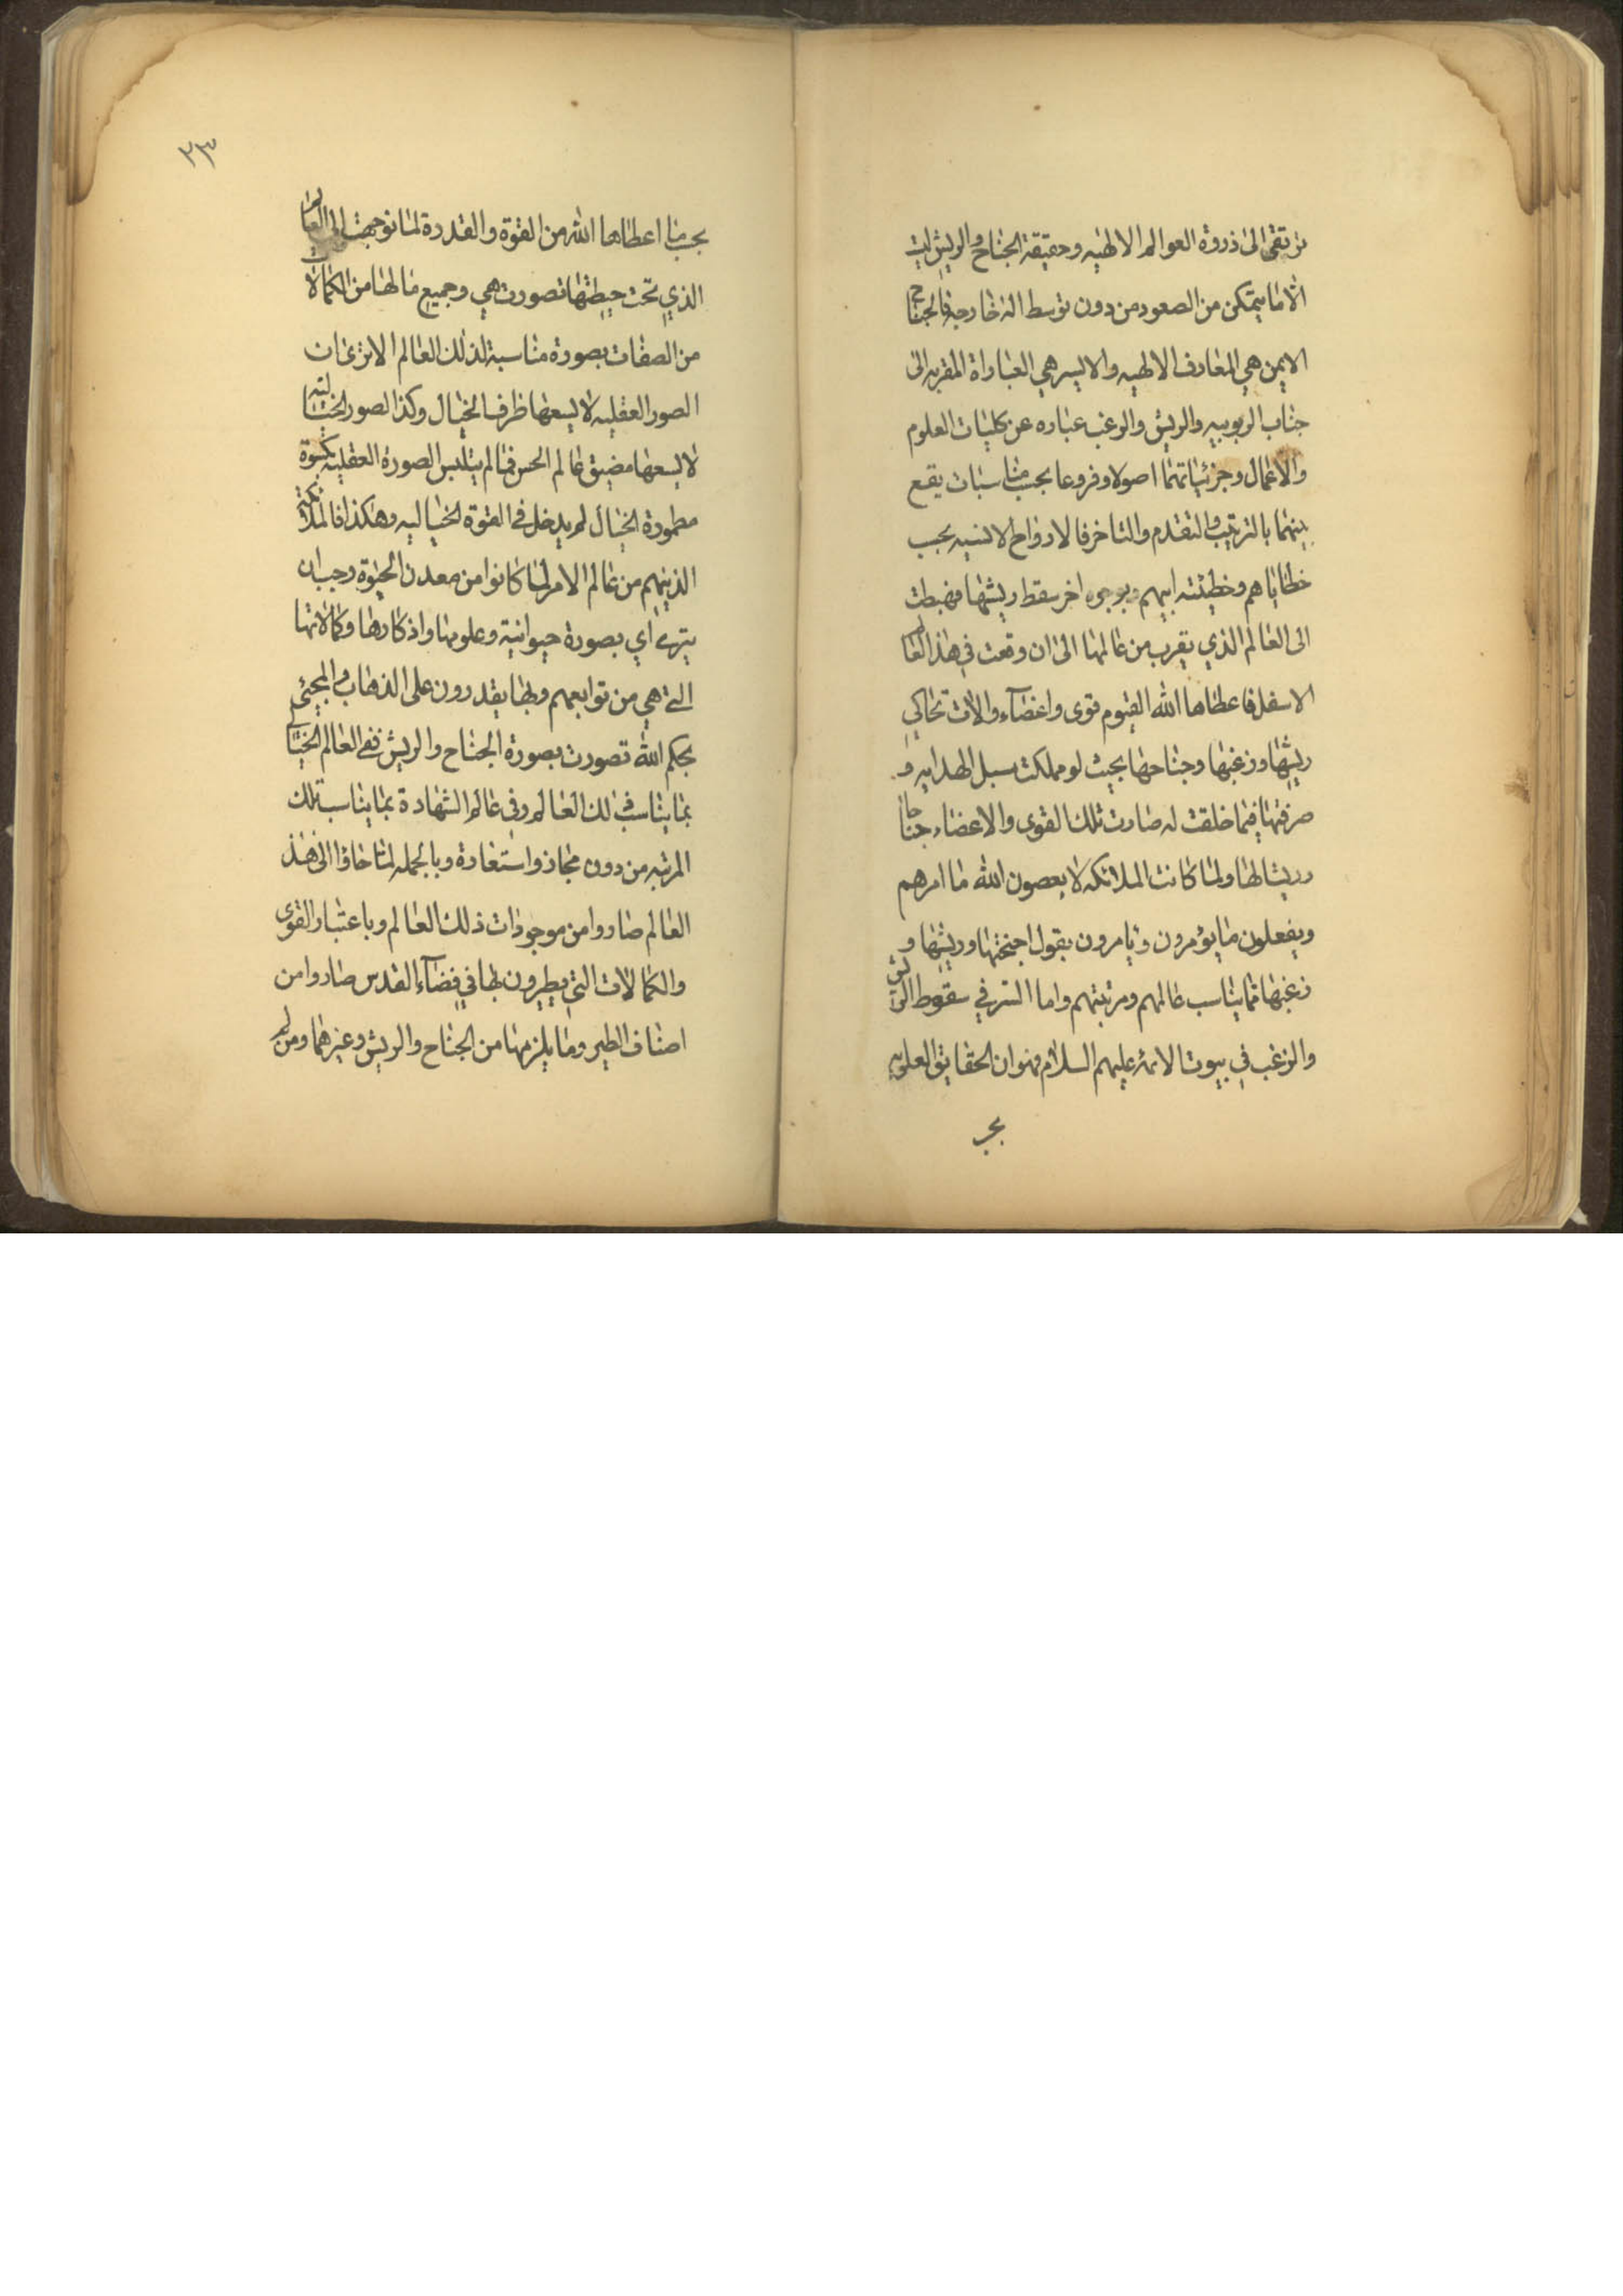 ترتقى الى ذروة العوالم الالهيه وحقيقة الجناح والريش ليست
الا ما يتمكن من الصعود من دون توسط الة خارجة فالجناح
الايمن هي المعارف الالهيه والايسر هي العباداة المقربه الى
جناب الربوبيه والريش والزغب عباره عن كليات العلوم
والاعمال وجزئياتهما اصولا وفروعا بحسب مناسبات يقع
بينهما بالترتيب والتقدم والتاخر فالارواح الانسيه بحسب
خطاياهم وخطيئته ابيهم بوجه اخر سقط ريشها فهبطت
الى العالم الذي يقرب من عالمها الى ان وقعت في هذا العالم
الاسفل فاعطاها الله القيوم قوى واعضآء والات تحاكي
ريشها وزغبها وجناحها بحيث لو ملكت سبل الهدايه و
صرفتها فيما خلقت له صارت تلك القوى والاعضاء جناحا
وريشا لها ولما كانت الملائكه لا يعصون الله ما امرهم
ويفعلون ما يؤمرون ويامرون بقول اجنحتها وريشها و
زغبها مما يناسب عالمهم ومرتبتهم واما السر في سقوط الريش
والزغب في بيوت الائمة عليهم السلام فهو ان الحقايق العلويه
بحسب
٢٣
بحسب ما اعطاها الله من القوة والقدرة لما توجهت الى العالم
الذي تحت حيطتها تصورت هي وجميع ما لها من الكمالات
من الصفات بصورة مناسبة لذلك العالم الا ترى ان
الصور العقليه لا يسعها ظرف الخيال وكذا الصور الخياليه
لا يسعها مضيق عالم الحس فما لم يتلبس الصورة العقليه بكسوة
مطمورة الخيال لم يدخل في القوة الخياليه وهكذا فالملائكة
الذينهم من عالم الامر لما كانوا من معدن الحيوة وجب ان
يترءاي بصورة حيوانية وعلومها واذكارها وكمالاتها
التي هي من توابعهم وبها يقدرون على الذهاب والمجيئ
بحكم الله تصورت بصورة الجناح والريش ففي العالم الخيالي
بما يناسب ذلك العالم وفي عالم الشهادة بما يناسب تلك
المرتبه من دون مجاز واستعارة وبالجمله لما جاؤا الى هذ
العالم صاروا من موجودات ذلك العالم وباعتبار القوى
والكمالات التي يطيرون بها في فضآء القدس صاروا من
اصناف الطير وما يلزمها من الجناح والريش وغيرهما ومن